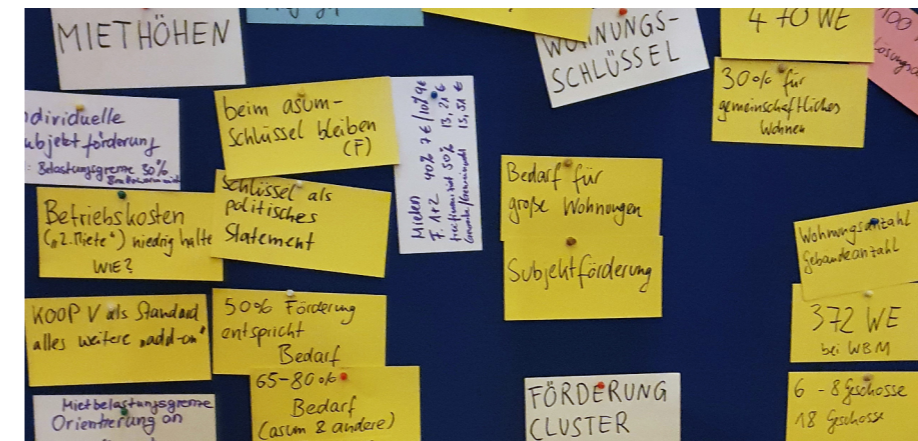 MIETHÖHEN
dividuelle
ubjektförderung
: Belastungsgrenze 30%
Bruttowarmmiete
Betriebskosten
("2. Miete") niedrig halte
WIE?
KOOP V als Standard
alles weitere „add-on"
Mietbelastungsgrenze
Orientierung an
beim asum-
Schlüssel bleiben
(F)
Schlüssel als
politisches
Statement
50% Förderung
entspricht
Bedarf
65-80%
Bedarf
(asum & andere)
Mieten
F. 1+2 40% 7€/10% 9€
freifinanziert 50% 13,21 €
Gewerbe/Gemeinwohl 13,51 €
WOHNUNGS-
SCHLÜSSEL
Bedarf für
große Wohnungen
Subjektförderung
FÖRDERUNG
CLUSTER
470 WE
30% für
gemeinschaftliches
Wohnen
100
Wohnungsanzahl
Gebäudeanzahl
372 WE
bei WBM
6 - 8 Geschosse
18 Geschosse